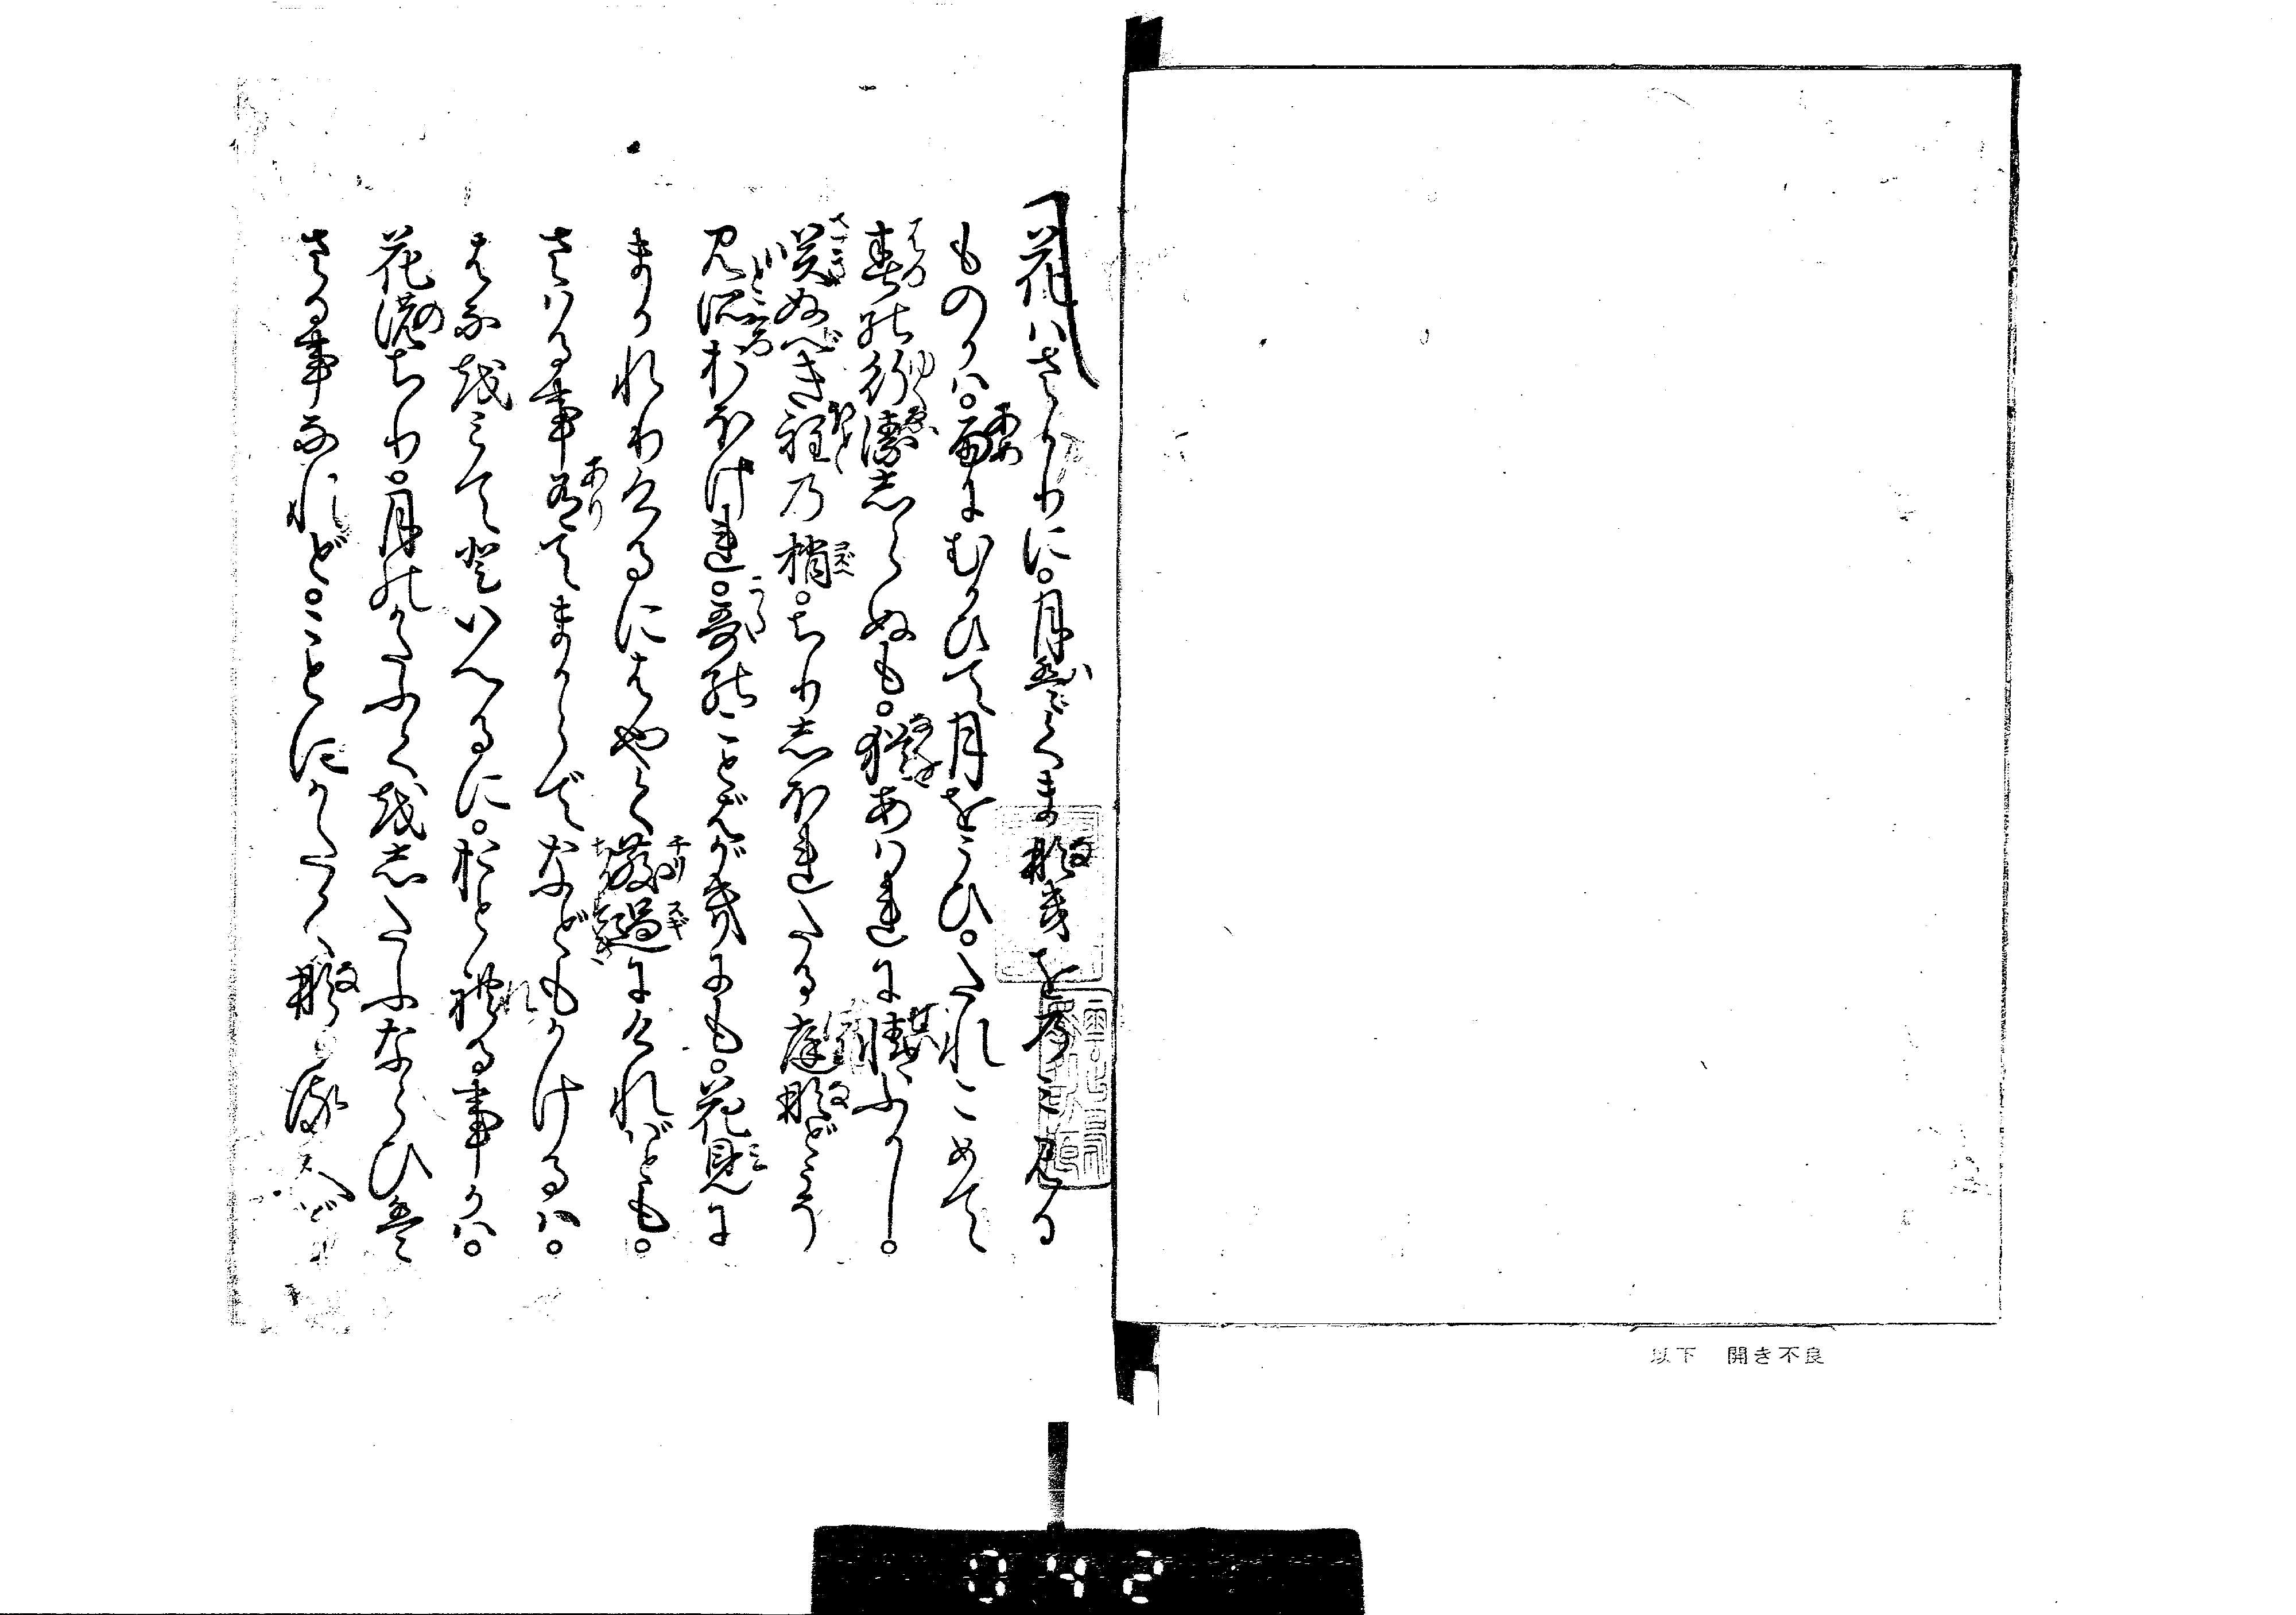 以下　開き不良
花はさかりに。月はくまなきをのみ見る
ものかは。雨にむかひて月をこひ。たれこめて
春の行衛しらぬも。猶あはれに情ふかし。
咲ぬべき程乃梢。ちりしほれたる庭などこそ
見所おほけれ。哥のことばがきにも。花見に
まかれりけるにはやく散過にければとも。
さはる事有てまからでなどもかけるは。
はなをみてといへるに。おとれる事かは。
花のちり。月のかたふくをしたふならひは
さる事なれど。ことにかたくななる人ぞ
042